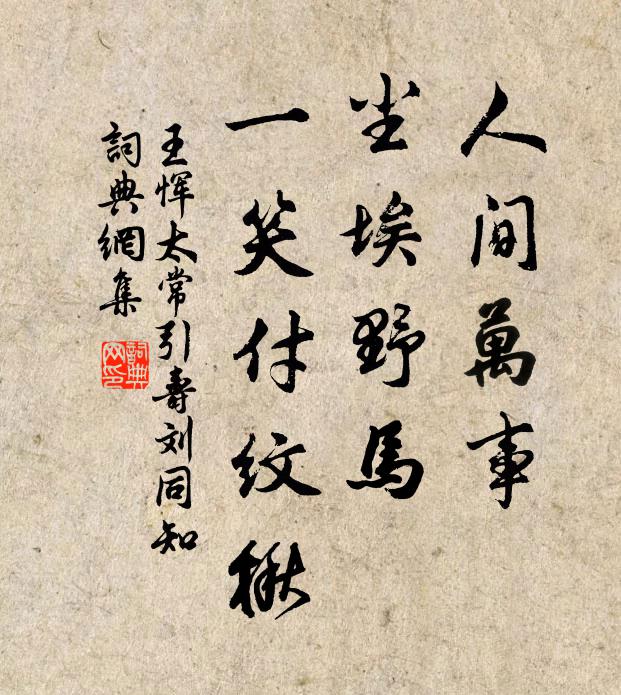 人間萬事
尘埃野馬
一笑付紋楸
王恽太常引壽刘同知
詞典網集
詞典
网印